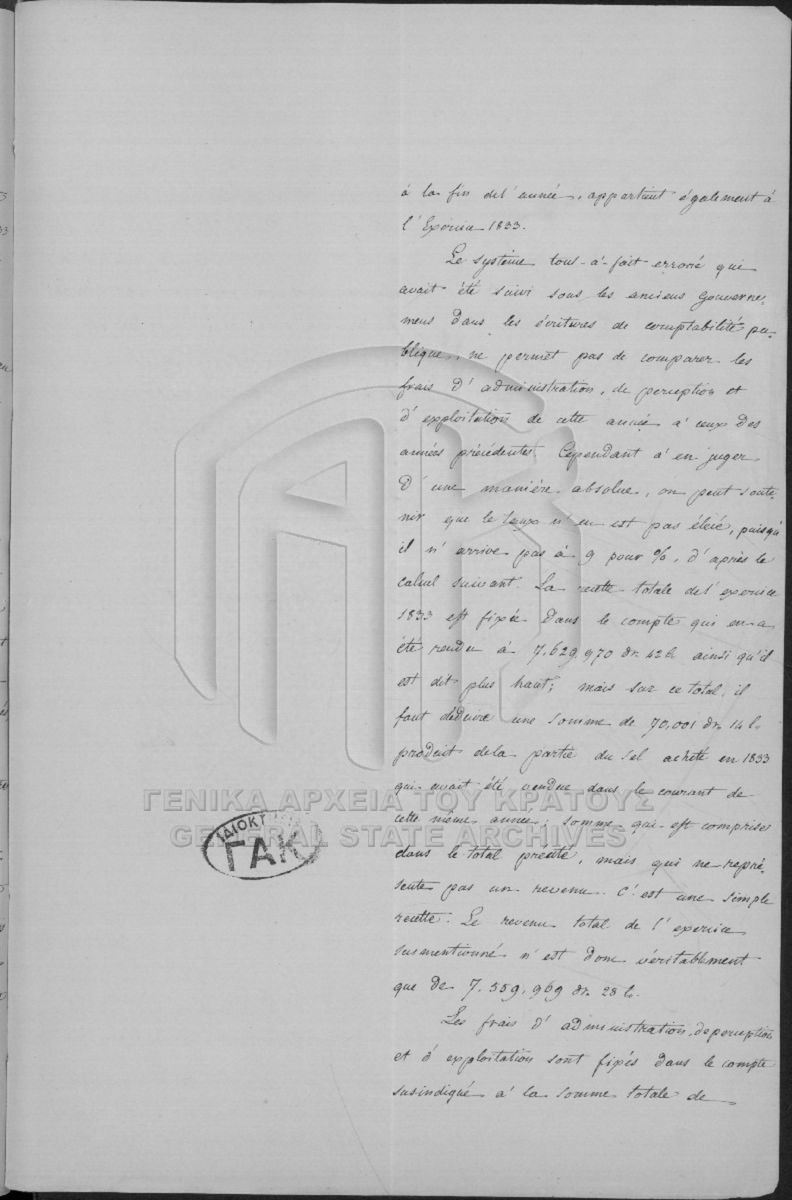 à la fin de l'année, appartient également à
l'Exercice 1833.
Le système tout-à-fait erroné qui
avait été suivi sous les anciens Gouverne-
mens dans les écritures de comptabilité pu-
blique, ne permet pas de comparer les
frais d'administration, de perception et
d'exploitation de cette année à ceux des
années précédentes. Cependant à en juger
d'une manière absolue, on peut soute-
nir que le taux n'en est pas élevé, puisqu'
il n'arrive pas à 9 pour %, d'après le
calcul suivant. La recette totale de l'exercice
1833 est fixée dans le compte qui en a
été rendu à 7,629,970 dr. 42 l. ainsi qu'il
est dit plus haut; mais sur ce total, il
faut déduire une somme de 70,001 dr. 14 l.
produit de la partie du sel acheté en 1833
qui avait été vendue dans le courant de
cette même année; somme qui est comprise
dans le total précité, mais qui ne repré-
sente pas un revenu. C'est une simple
recette. Le revenu total de l'exercice
susmentionné n'est donc véritablement
que de 7,559,969 dr. 28 l.
Les frais d'administration, de perception
et d'exploitation sont fixés dans le compte
susindiqué à la somme totale de
ΓΕΝΙΚΑ ΑΡΧΕΙΑ ΤΟΥ ΚΡΑΤΟΥΣ
GENERAL STATE ARCHIVES
ΓΑΚ